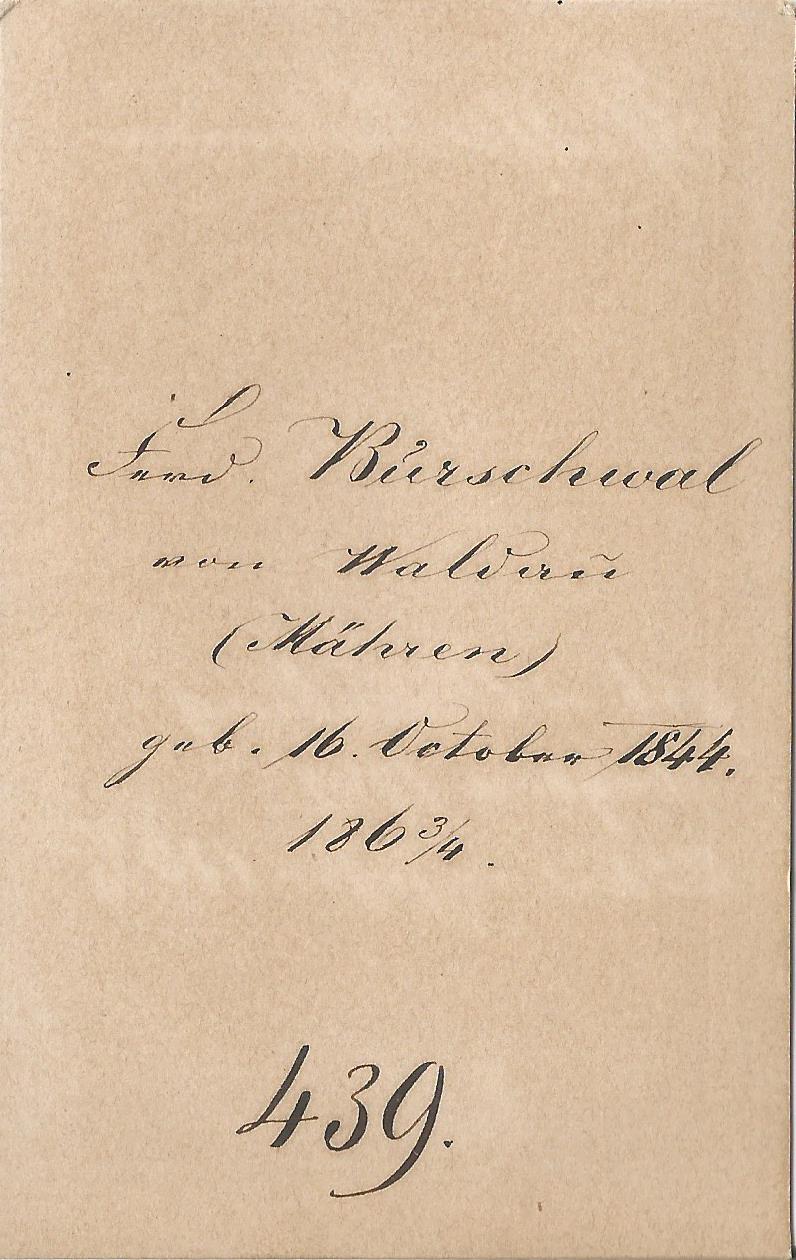 Ferd. Burschwal
von Waldau
(Mähren)
geb. 16. October 1844.
186 3/4.
439.